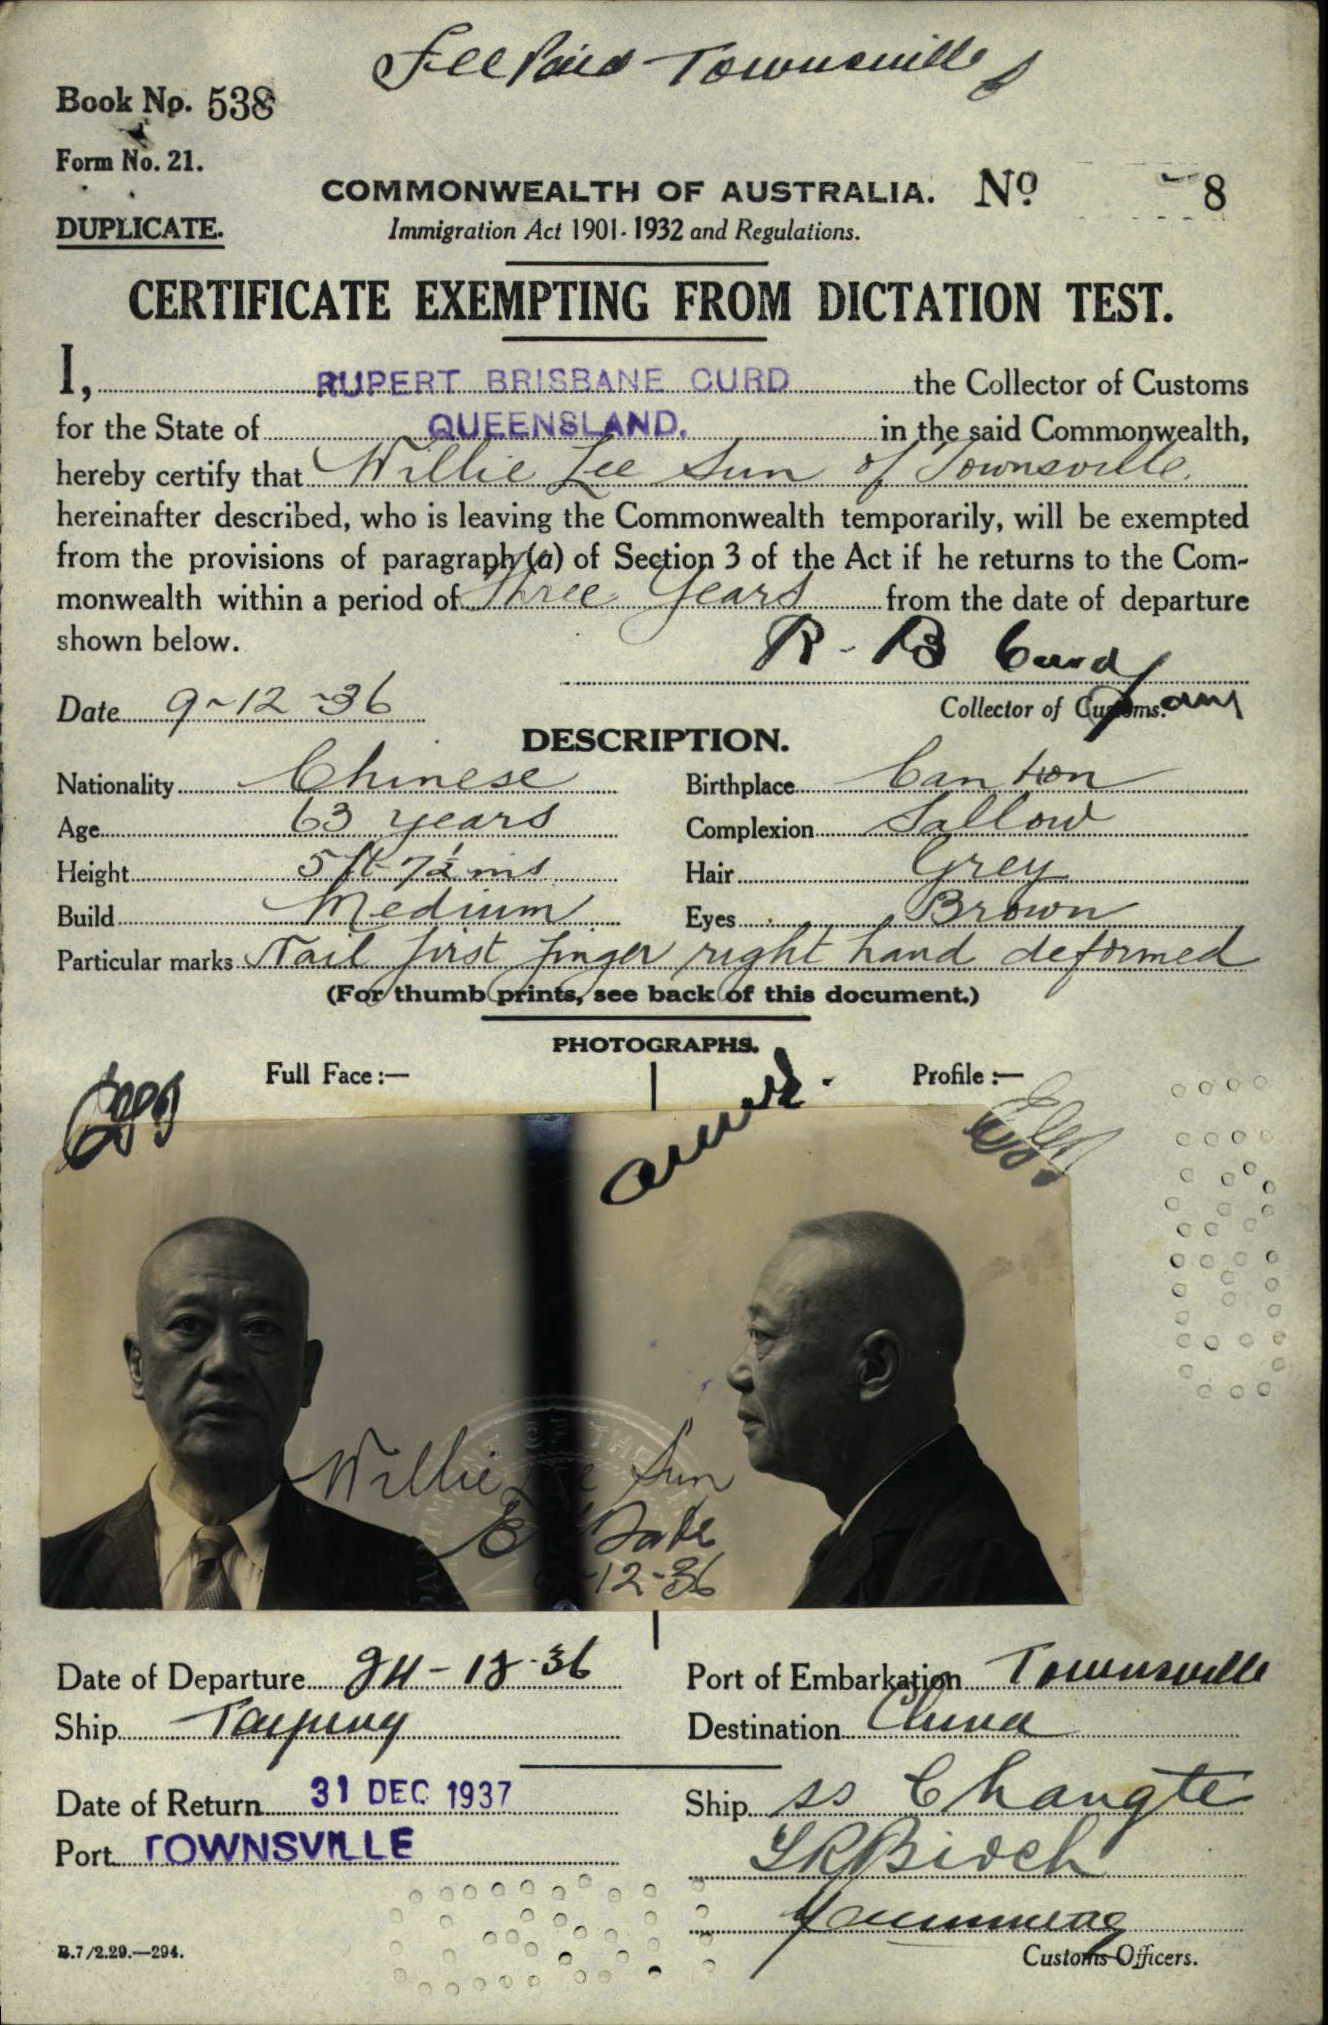 Fee Paid Townsville
Book No. 538
Form No. 21.
COMMONWEALTH OF AUSTRALIA. No 8
DUPLICATE.
Immigration Act 1901-1932 and Regulations.
CERTIFICATE EXEMPTING FROM DICTATION TEST.
I, RUPERT BRISBANE CURD the Collector of Customs
for the State of QUEENSLAND. in the said Commonwealth,
hereby certify that Willie Lee Sun of Townsville
hereinafter described, who is leaving the Commonwealth temporarily, will be exempted
from the provisions of paragraph (a) of Section 3 of the Act if he returns to the Com-
monwealth within a period of Three Years from the date of departure
shown below.
R. B Curd
Date 9-12-36
Collector of Customs.
DESCRIPTION.
Nationality Chinese Birthplace Canton
Age 63 years Complexion Sallow
Height 5 ft 7½ ins Hair Grey
Build Medium Eyes Brown
Particular marks Nail first finger right hand deformed
(For thumb prints, see back of this document.)
PHOTOGRAPHS.
Full Face :— Profile :—
Willie Lee Sun
12-36
Date of Departure 24-12-36 Port of Embarkation Townsville
Ship Taiping Destination China
Date of Return 31 DEC 1937 Ship ss Changte
Port TOWNSVILLE
Customs Officers.
B.7/2.29.—294.